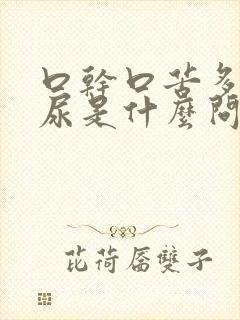 口幹口苦多
尿是什麼問
芘荷唇雙子